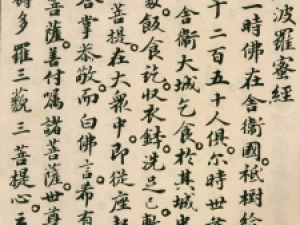 波羅蜜經
一時佛在舍衛國祇樹給
千二百五十人俱尒時世
舍衛大城乞食於其城中
處飯食訖收衣鉢洗足已敷
菩提在大衆中即從座起
合掌恭敬而白佛言希有
菩薩善付囑諸菩薩世尊
耨多羅三藐三菩提心云